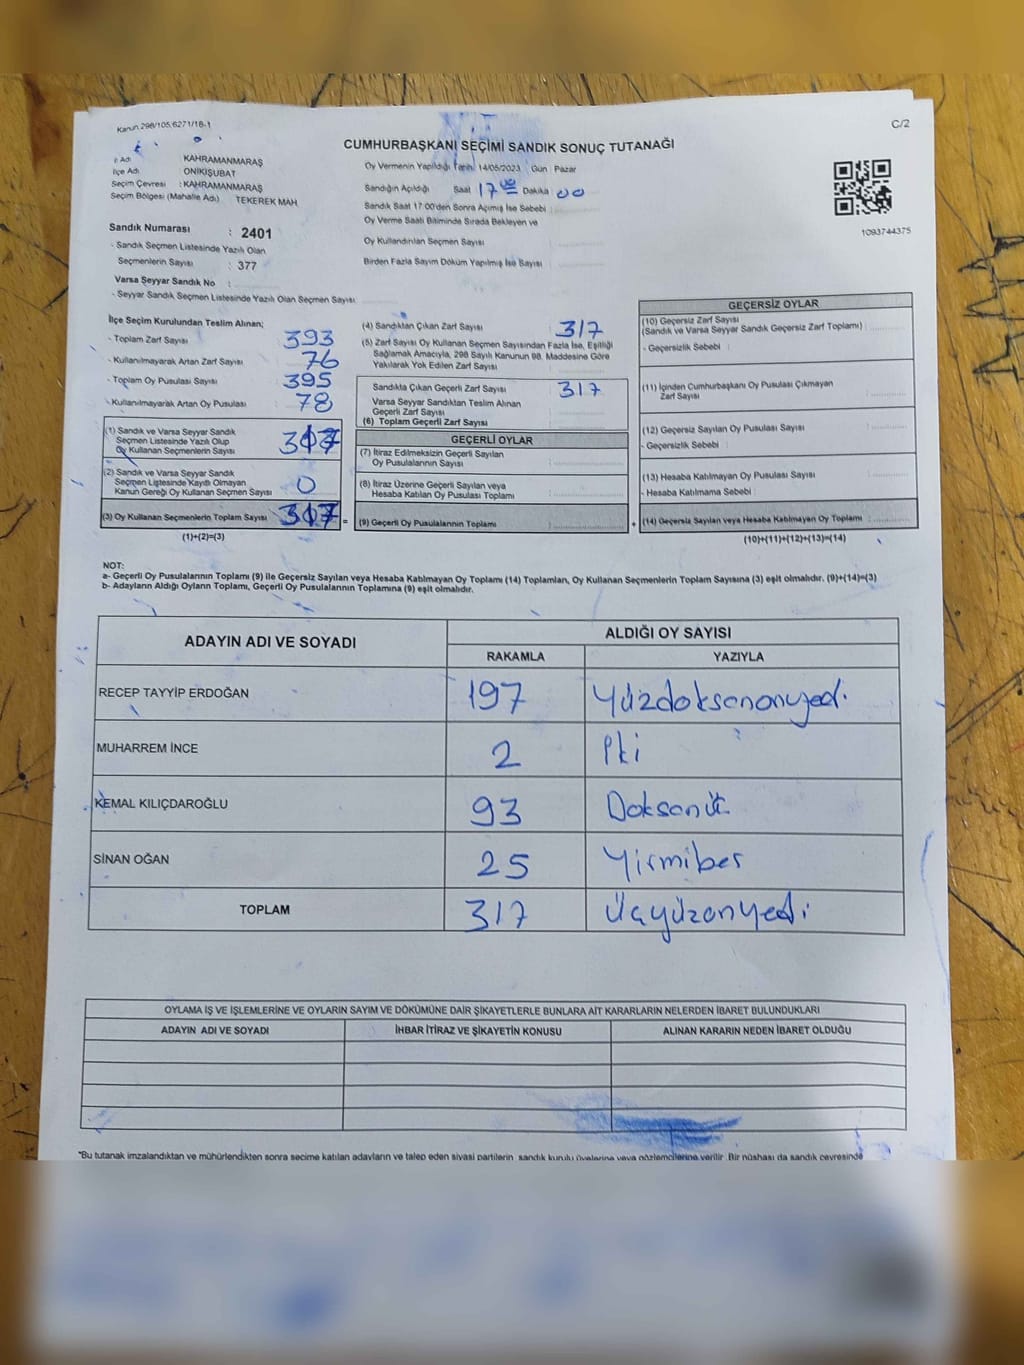 Kanun.298/105,6271/18-1
C/2
CUMHURBAŞKANI SEÇİMİ SANDIK SONUÇ TUTANAĞI
İl Adı KAHRAMANMARAŞ
İlçe Adı ONİKİŞUBAT
Seçim Çevresi : KAHRAMANMARAŞ
Seçim Bölgesi (Mahalle Adı) TEKEREK MAH
Sandık Numarası : 2401
- Sandık Seçmen Listesinde Yazılı Olan
Seçmenlerin Sayısı : 377
Varsa Seyyar Sandık No :
- Seyyar Sandık Seçmen Listesinde Yazılı Olan Seçmen Sayısı
Oy Vermenin Yapıldığı Tarih: 14/05/2023 Gün Pazar
Sandığın Açıldığı Saat 17 00 Dakika 00
Sandık Saat 17:00'den Sonra Açımış İse Sebebi
Oy Verme Saati Bitiminde Sırada Bekleyen ve
Oy Kullandırılan Seçmen Sayısı
Birden Fazla Sayım Döküm Yapılmış İse Sayısı
1093744375
İlçe Seçim Kurulundan Teslim Alınan;
- Toplam Zarf Sayısı 393
- Kullanılmayarak Artan Zarf Sayısı 76
- Toplam Oy Pusulası Sayısı 395
- Kullanılmayarak Artan Oy Pusulası 78
(1) Sandık ve Varsa Seyyar Sandık
Seçmen Listesinde Yazılı Olup
Oy Kullanan Seçmenlerin Sayısı 317
(2) Sandık ve Varsa Seyyar Sandık
Seçmen Listesinde Kayıtlı Olmayan
Kanun Gereği Oy Kullanan Seçmen Sayısı 0
(3) Oy Kullanan Seçmenlerin Toplam Sayısı 317 =
(1)+(2)=(3)
(4) Sandıktan Çıkan Zarf Sayısı 317
(5) Zarf Sayısı Oy Kullanan Seçmen Sayısından Fazla İse, Eşitliği
Sağlamak Amacıyla, 298 Sayılı Kanunun 98. Maddesine Göre
Yakılarak Yok Edilen Zarf Sayısı
Sandıkta Çıkan Geçerli Zarf Sayısı 317
Varsa Seyyar Sandıktan Teslim Alınan
Geçerli Zarf Sayısı
(6) Toplam Geçerli Zarf Sayısı
GEÇERLİ OYLAR
(7) İtiraz Edilmeksizin Geçerli Sayılan
Oy Pusulalarının Sayısı
(8) İtiraz Üzerine Geçerli Sayılan veya
Hesaba Katılan Oy Pusulası Toplamı
(9) Geçerli Oy Pusulalarının Toplamı +
GEÇERSİZ OYLAR
(10) Geçersiz Zarf Sayısı
(Sandık ve Varsa Seyyar Sandık Geçersiz Zarf Toplamı)
- Geçersizlik Sebebi :
(11) İçinden Cumhurbaşkanı Oy Pusulası Çıkmayan
Zarf Sayısı
(12) Geçersiz Sayılan Oy Pusulası Sayısı
- Geçersizlik Sebebi :
(13) Hesaba Katılmayan Oy Pusulası Sayısı
- Hesaba Katılmama Sebebi
(14) Geçersiz Sayılan veya Hesaba Katılmayan Oy Toplamı
(10)+(11)+(12)+(13)=(14)
NOT:
a- Geçerli Oy Pusulalarının Toplamı (9) ile Geçersiz Sayılan veya Hesaba Katılmayan Oy Toplamı (14) Toplamları, Oy Kullanan Seçmenlerin Toplam Sayısına (3) eşit olmalıdır. (9)+(14)=(3)
b- Adayların Aldığı Oyların Toplamı, Geçerli Oy Pusulalarının Toplamına (9) eşit olmalıdır.
ADAYIN ADI VE SOYADI
ALDIĞI OY SAYISI
RAKAMLA YAZIYLA
RECEP TAYYİP ERDOĞAN 197 Yüzdoksanonyedi
MUHARREM İNCE 2 İki
KEMAL KILIÇDAROĞLU 93 Doksanüç
SİNAN OĞAN 25 Yirmibeş
TOPLAM 317 Üçyüzonyedi
OYLAMA İŞ VE İŞLEMLERİNE VE OYLARIN SAYIM VE DÖKÜMÜNE DAİR ŞİKAYETLERLE BUNLARA AİT KARARLARIN NELERDEN İBARET BULUNDUKLARI
ADAYIN ADI VE SOYADI İHBAR İTİRAZ VE ŞİKAYETİN KONUSU ALINAN KARARIN NEDEN İBARET OLDUĞU
"Bu tutanak imzalandıktan ve mühürlendikten sonra seçime katılan adayların ve talep eden siyasi partilerin, sandık kurulu üyelerine veya gözlemcilerine verilir. Bir nüshası da sandık çevresinde